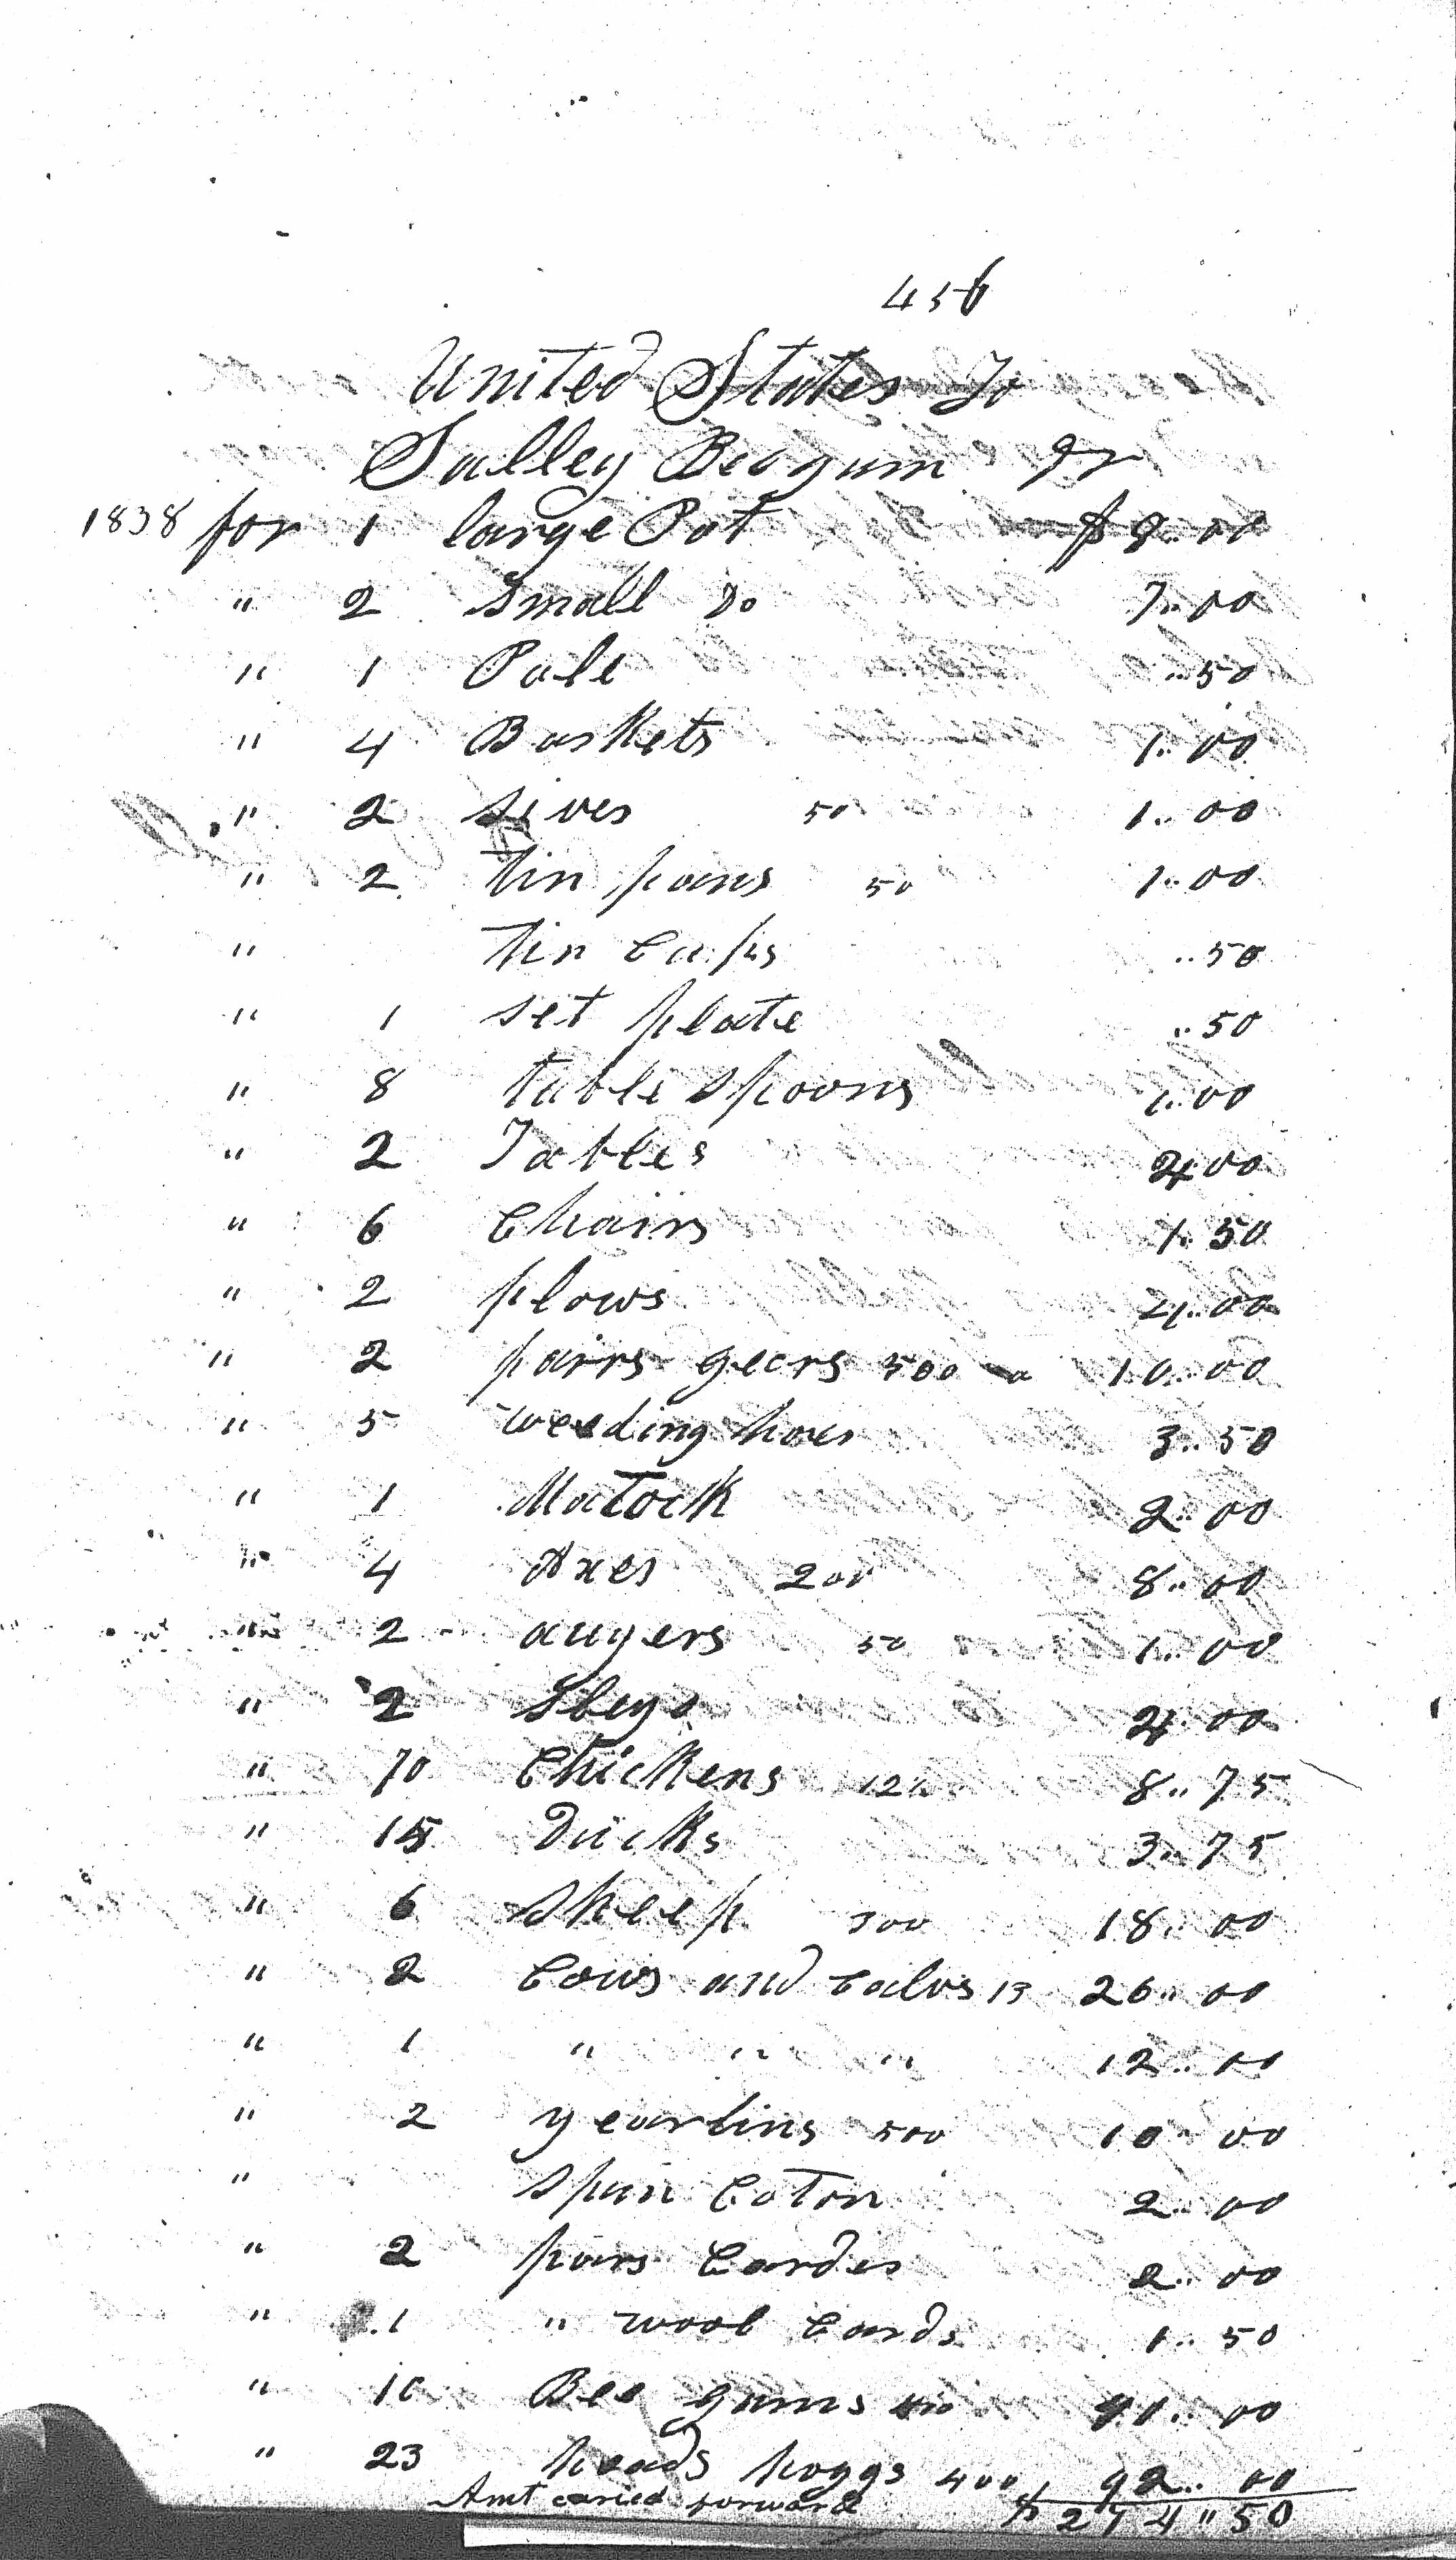 456
United States To
Salley Beogum Dr
1838 for 1 large Pot $ 8.. 00
" 2 Small Do 7.. 00
" 1 Pale .. 50
" 4 Baskets 1.. 00
" 2 Sives 50 1.. 00
" 2 tin pans 50 1.. 00
" tin Cups .. 50
" 1 set plate .. 50
" 8 table spoons 1.. 00
" 2 Tables 00
" 6 Chairs 1.. 50
" 2 plows 4.. 00
" 2 pairrs geers 500 10.. 00
" 5 weeding hoes 3.. 50
" 1 Matock 2.. 00
" 4 Axes 200 8.. 00
" 2 augers 50 1.. 00
" 2 Sleys 00
" 70 Chickens 12½ 8.. 75
" 15 Ducks 3.. 75
" 6 Sheep 300 18.. 00
" 2 Cows and Calvs 13 26.. 00
" 1 " " " 12.. 00
" 2 yearlins 500 10.. 00
" Spun Coton 2.. 00
" 2 pairs Cardes 2.. 00
" 1 " wool Cards 1.. 50
" 10 Bee gums 00
" 23 heads hoggs 400 92.. 00
Amt caried forward $ 274 " 50